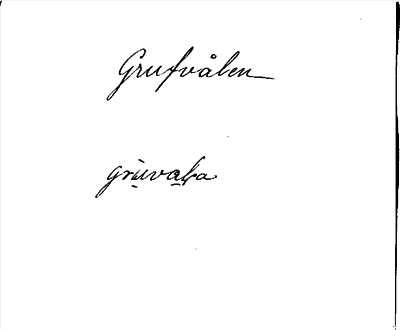 Grufvålen
grù̱va̱ła